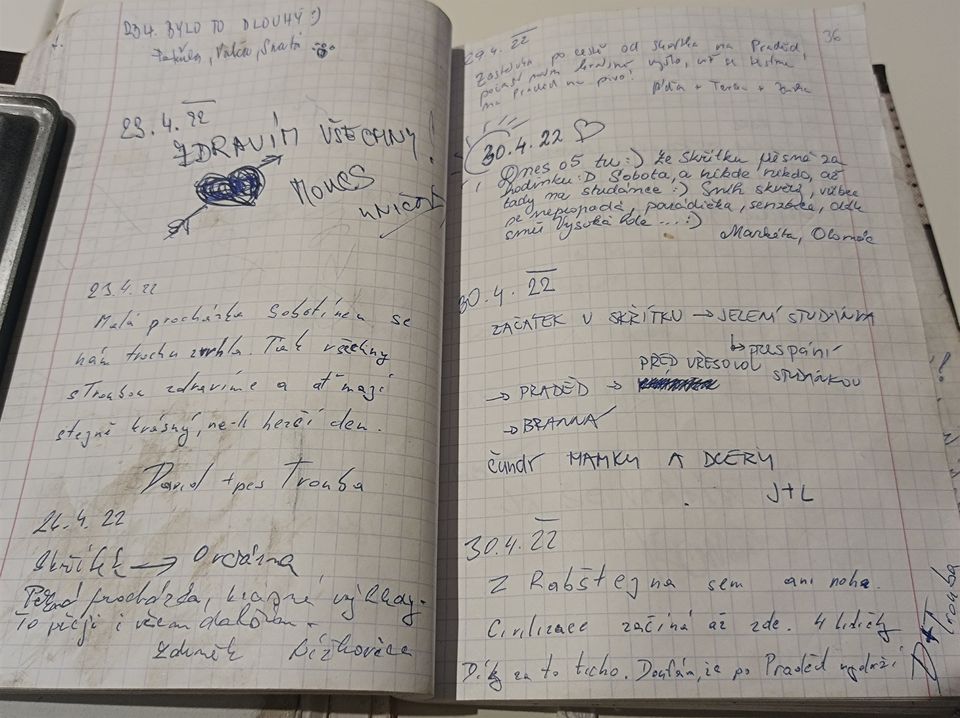 23.4. BYLO TO DLOUHÝ :)
23.4.22
ZDRAVÍM VŠECHNY!
UNIČOV
23.4.22
Malá procházka Sobotínem se
nám trochu zvrhla. Tak všechny
s Troubou zdravíme a ať mají
stejně krásný, ne-li hezčí den.
David + pes Trouba
26.4.22
Skřítek → Orlovna
procházka, krásné výhledy.
To přeji i všem dalším.
Zdeněk
36
29.4.22
Zastávka po cestě od Skřítka na Praděd,
počasí nám krásně vyšlo, už se těšíme
na praděd na pivo!
+ Terka +
30.4.22 ♡
Dnes o5 tu :) Ze Skřítku pěšmá za
hodinku :D Sobota, a nikde nikdo, až
tady na studánce :) Sníh skvělý, vůbec
se nepropadá, parádička, seníbea, dále
směr Vysoká hole ... :)
Markéta, Olomouc
30.4.22
ZAČÁTEK V SKŘÍTKU → JELENÍ STUDÁNKA
↳ přespání
PŘED VŘESOVOU
→ PRADĚD → STUDÁNKOU
→ BRANNÁ
čundr MAMKY A DCERY
J+L
30.4.22
Z Rabštejna sem ani noha.
Civilizace začíná až zde. 4 lidičky
Díky za to ticho. Doufám, že po Praděd vydrží
D+T
Trouba